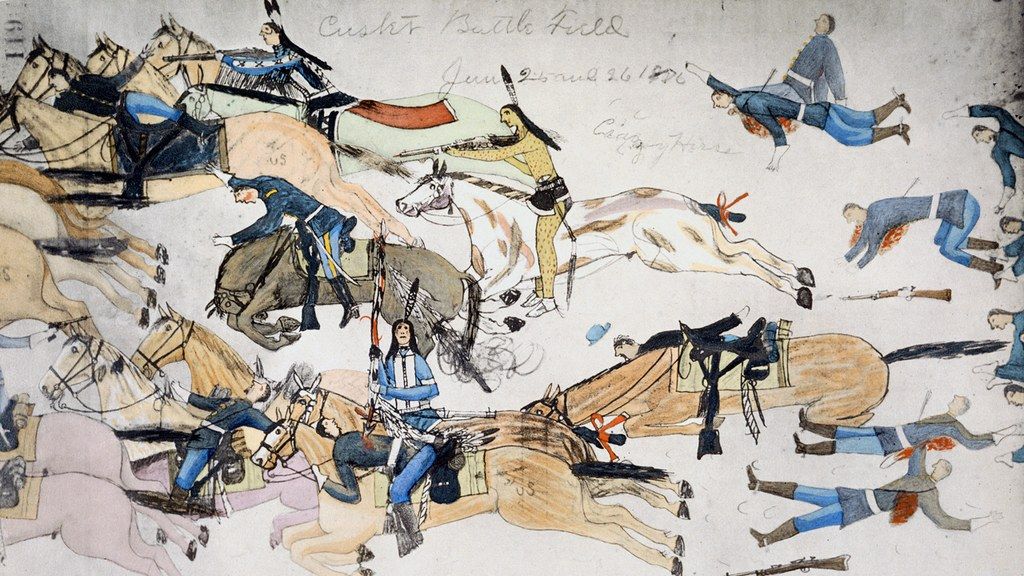 Custer Battle Field
June 25 and 26 1876
Crazy Horse
US
US